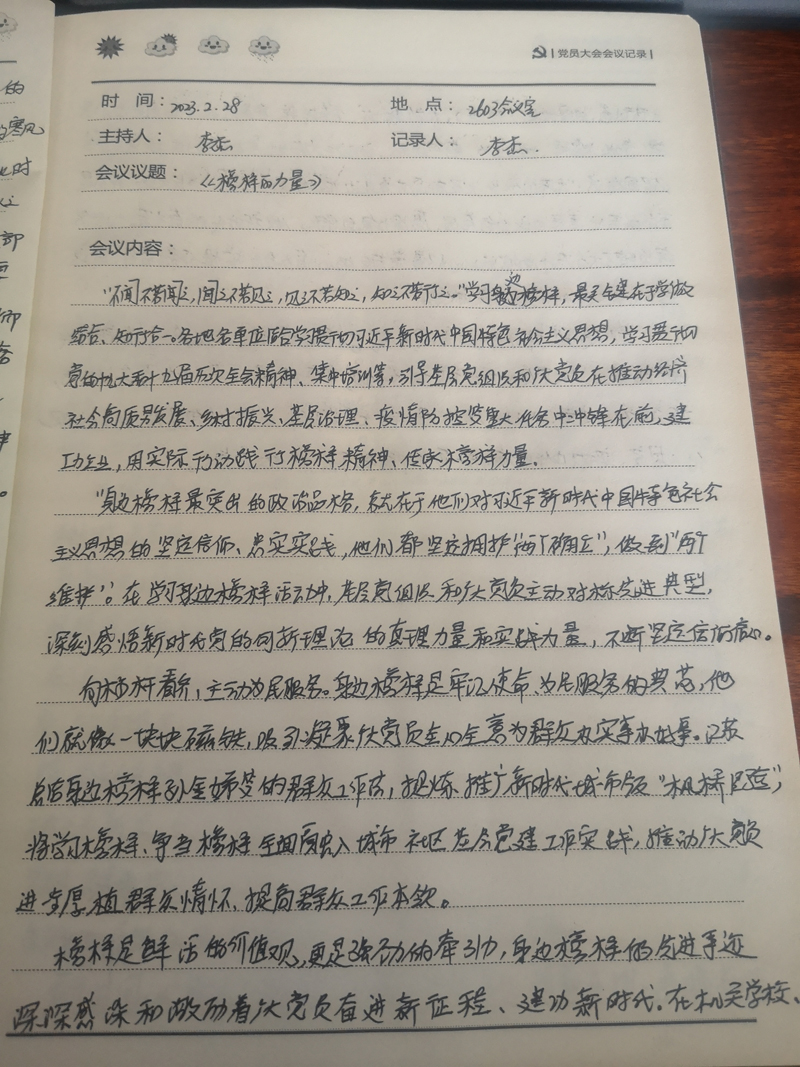 党员大会会议记录
时 间：2023.2.28 地 点：2603会议室
主持人：李杰 记录人：李杰.
会议议题：《榜样的力量》
会议内容：
"不闻不若闻之，闻之不若见之，见之不若知之，知之不若行之。"学习身边榜样，最关键在于学做
结合、知行合一。各地各单位结合学习贯彻习近平新时代中国特色社会主义思想，学习贯彻
党的十九大和十九届历次全会精神、集中培训等，引导基层党组织和广大党员在推动经济
社会高质量发展、乡村振兴、基层治理、疫情防控等重大任务中冲锋在前，建
功立业，用实际行动践行榜样精神、传承榜样力量.
"身边榜样最突出的政治品格，就在于他们对习近平新时代中国特色社会
主义思想的坚定信仰、忠实实践，他们都坚定拥护"两个确立"，做到"两个
维护"。在学习身边榜样活动中，基层党组织和广大党员主动对标先进典型，
深刻感悟新时代党的创新理论的真理力量和实践力量，不断坚定信仰信心。
向榜样看齐，主动为民服务。身边榜样是牢记使命、为民服务的典范，他
们就像一块块磁铁，吸引凝聚广大党员全心全意为群众办实事办好事。江苏
总结身边榜样孙金娣等的群众工作法，提炼、推广新时代城市版"枫桥经验"，
将学习榜样、争当榜样全面融入城市社区党建工作实践，推动广大党员
进一步厚植群众情怀、提高群众工作本领。
榜样是鲜活的价值观，更是强劲的牵引力，身边榜样的先进事迹
深深感染和激励着广大党员奋进新征程、建功新时代.在机关学校、